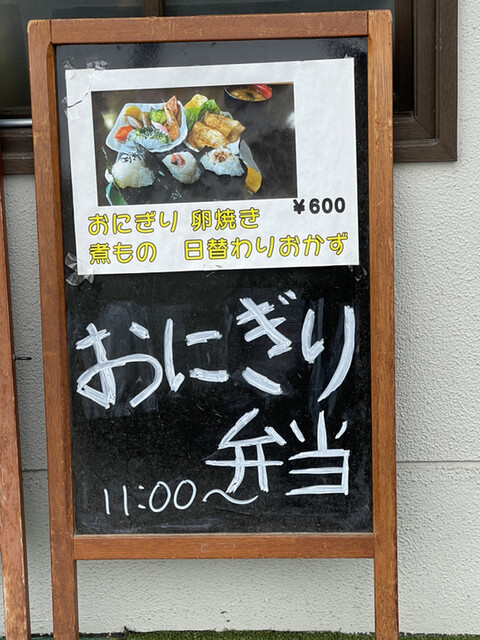 ¥600
おにぎり 卵焼き
煮もの 日替わりおかず
おにぎり
弁当
11:00〜